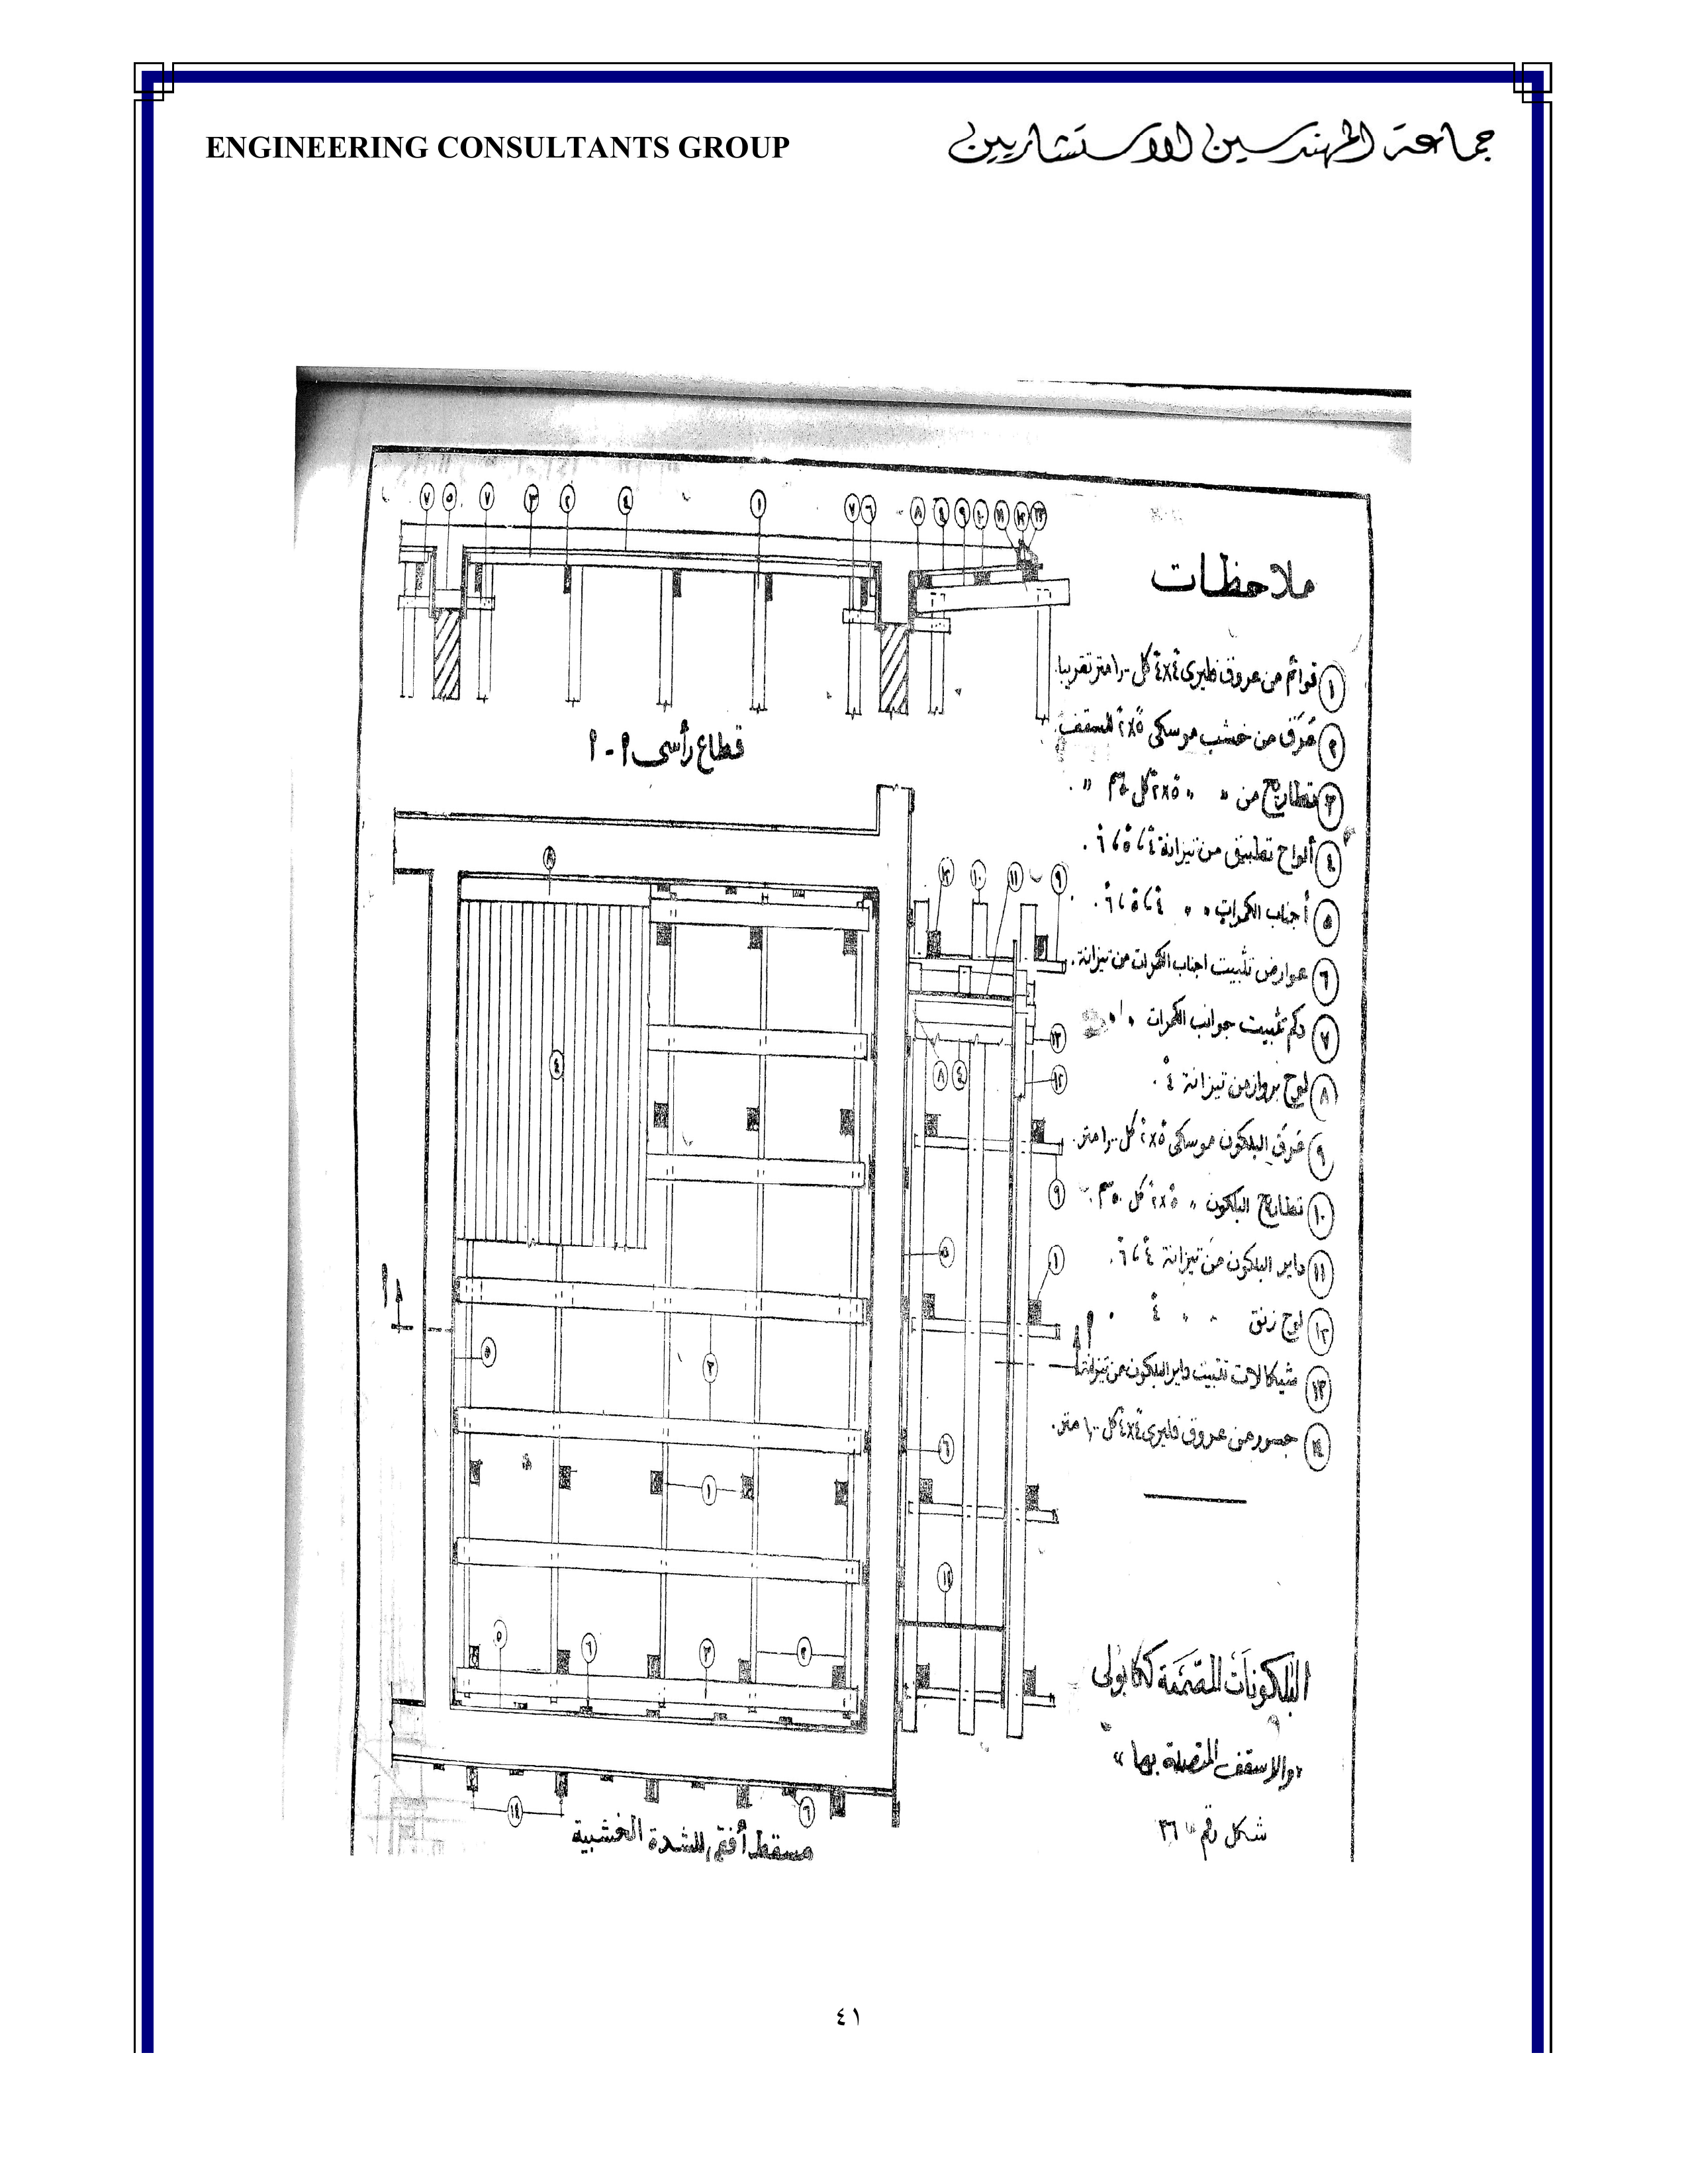 ENGINEERING CONSULTANTS GROUP
جماعة المهندسين الاستشاريين
٧ ٥ ٧ ٣ ٢ ٤ ١ ٧ ٦ ٨ ٤ ٩ ١٠ ١١ ١٢ ١٣
قطاع رأسى ٩-٩
ملاحظات
١ قوائم من عروق فليرى ٤×٤ كل ١,٠٠ متر تقريبا.
٢ عرق من خشب موسكى ٥×٢ للسقف
٣ تطاريح من " " ٥×٢ كل
٤ ألواح تطبيق من تيزانة ٤، ٥، ٦.
٥ أجناب الكمرات " " ٤، ٥، ٦.
٦ عوارض تثبيت اجناب الكمرات من تيزانة.
٧ دكم تثبيت جوانب الكمرات
٨ لوح برواز من تيزانة ٤.
٩ عرق البلكون موسكى ٥×٢ كل ١,٠٠ متر.
١٠ تطاريح البلكون " ٥×٢ كل
١١ داير البلكون من تيزانة ٤، ٦.
١٢ لوح زنق " " ٤.
١٣ شيكالات تثبيت داير البلكون من تيزانة
١٤ جسور من عروق فليرى ٤×٤ كل ١,٠٠ متر.
٨
٤
١٢ ١٠ ١١ ٩
١٣
٨ ٤ ١٢
٩
٥ ١
٥ ٣
٦
١
١٤
٥ ٦ ٣ ٢
١٤ ٦
مسقط أفقى للشدة الخشبية
البلكونات المصممة ككابولى
"والاسقف المتصلة بها"
شكل رقم ٣٦
٤١